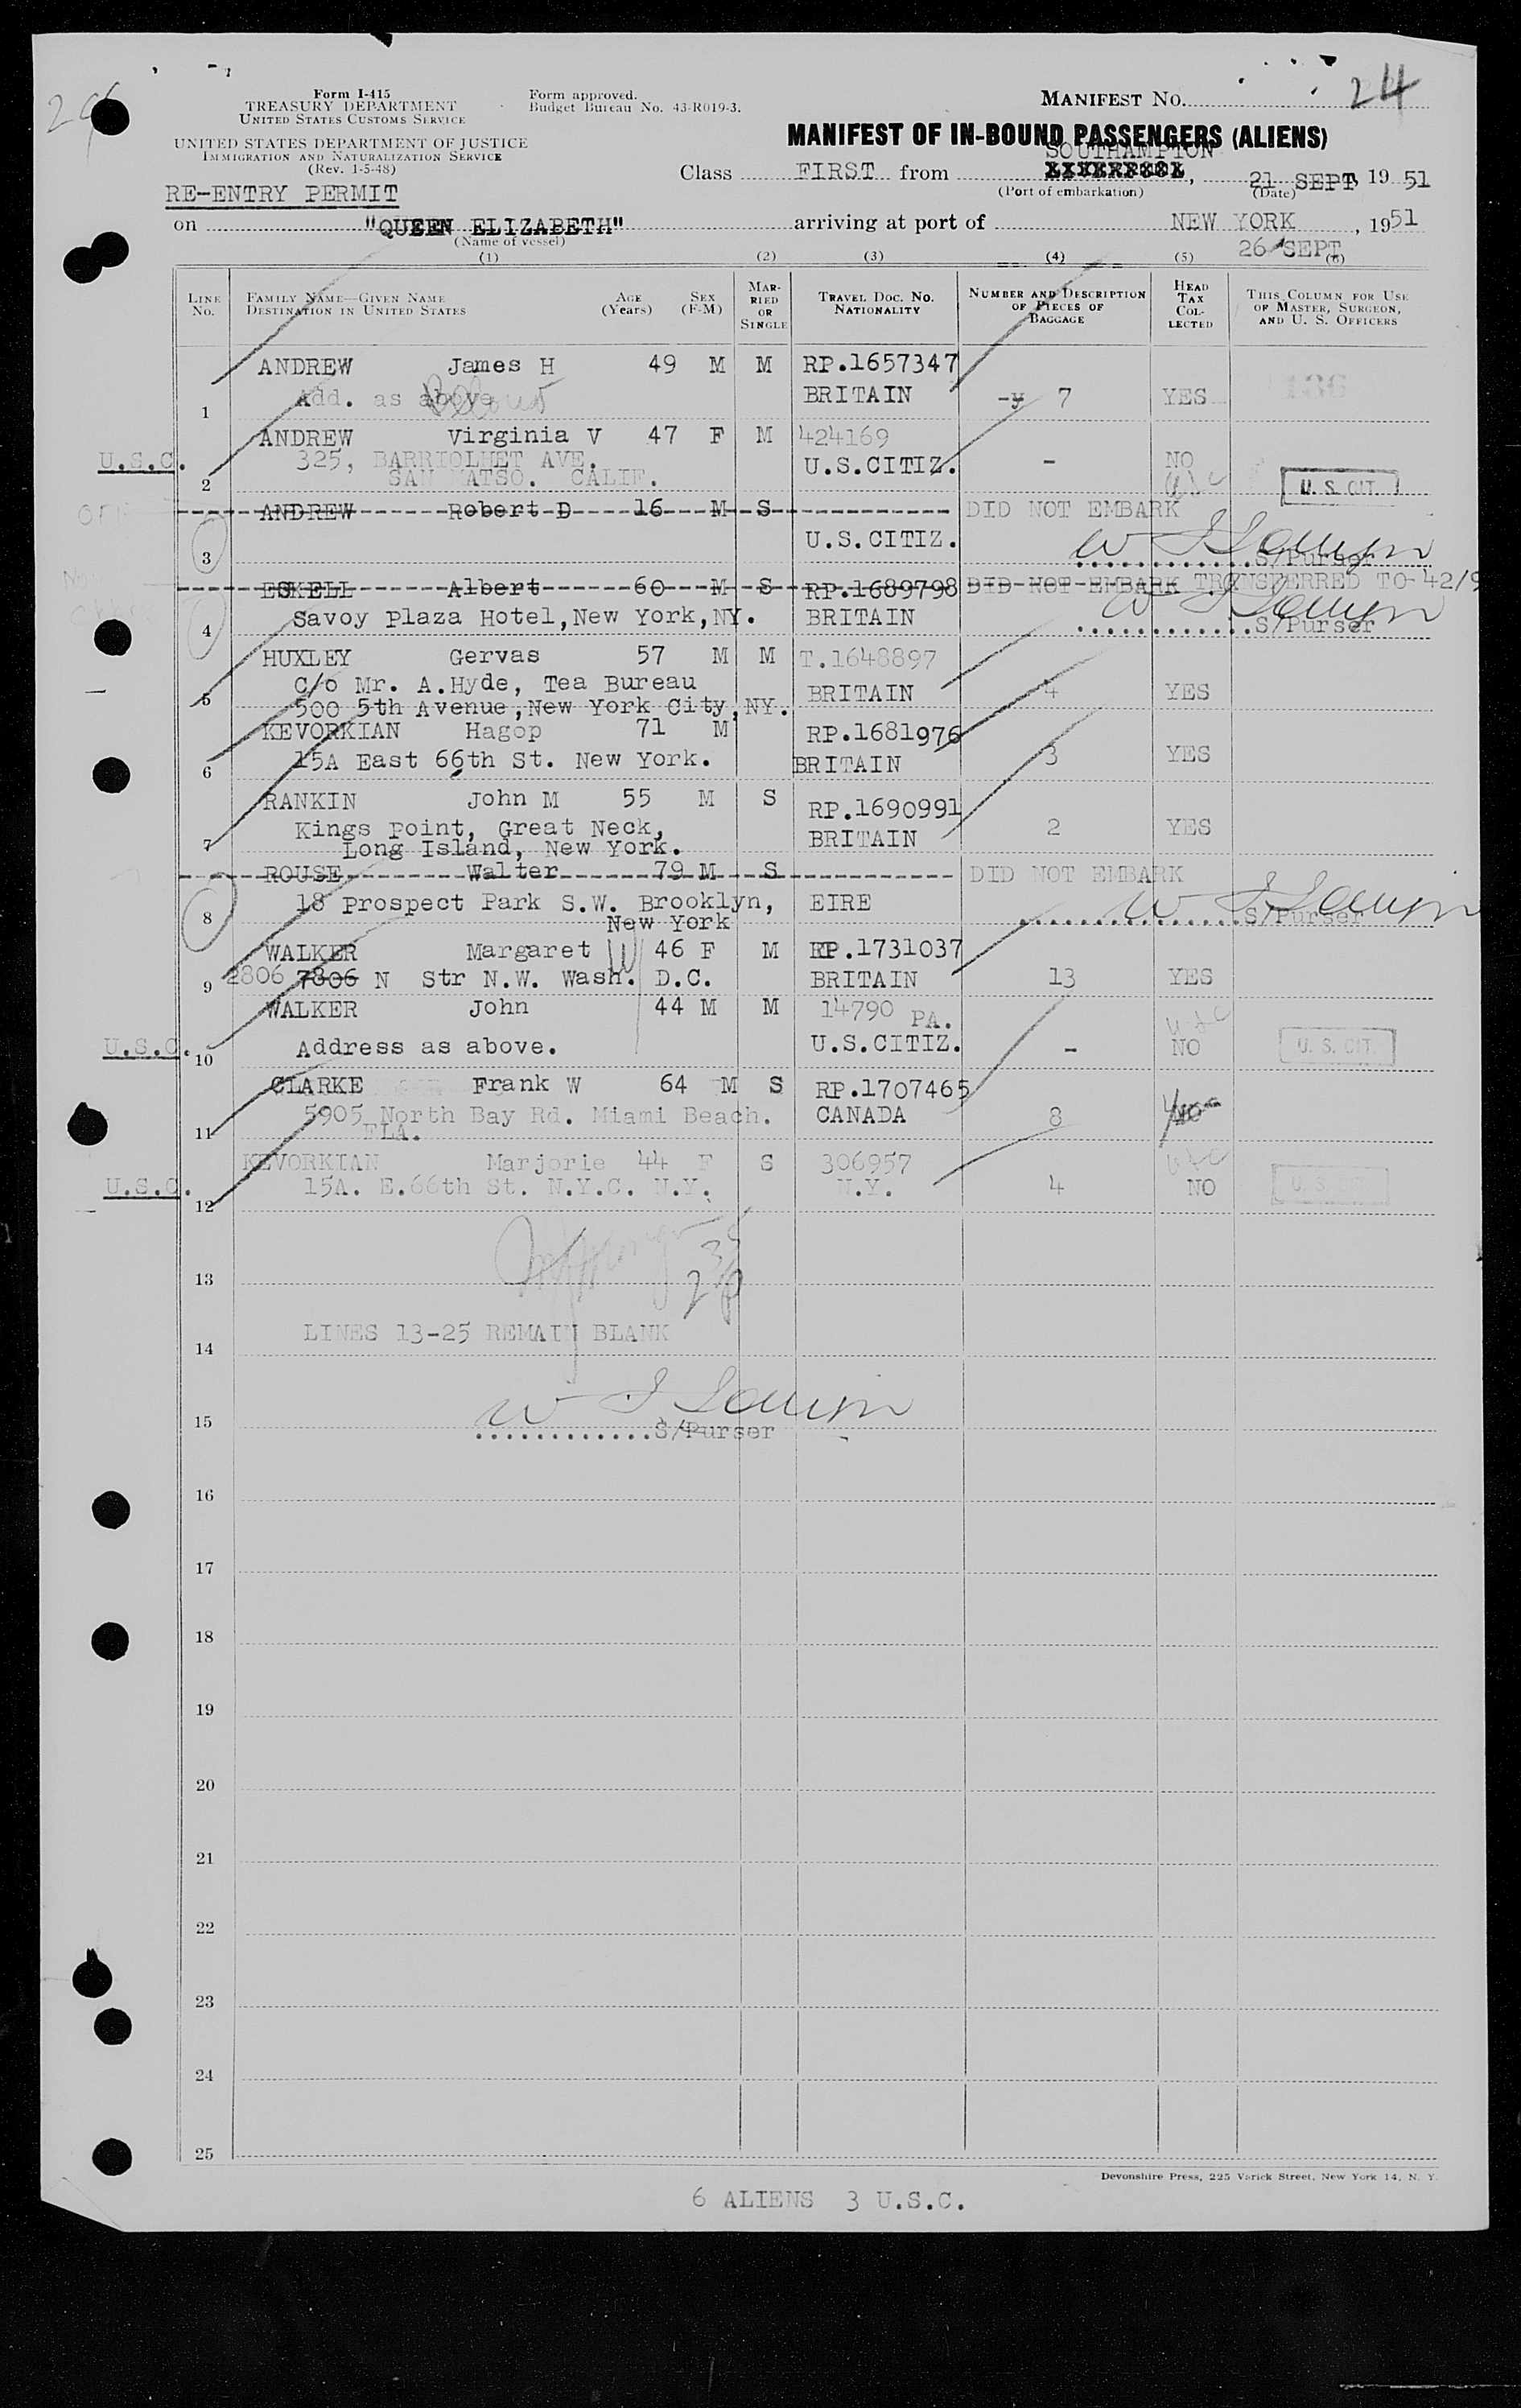 24
Form I-415
TREASURY DEPARTMENT
UNITED STATES CUSTOMS SERVICE
Form approved.
Budget Bureau No. 43-R019-3.
MANIFEST No. 24
UNITED STATES DEPARTMENT OF JUSTICE
IMMIGRATION AND NATURALIZATION SERVICE
(Rev. 1-5-48)
MANIFEST OF IN-BOUND PASSENGERS (ALIENS)
SOUTHAMPTON
Class FIRST from LIVERPOOL, 21 SEPT, 19 51
(Port of embarkation) (Date)
RE-ENTRY PERMIT
on "QUEEN ELIZABETH" arriving at port of NEW YORK, 1951
(Name of vessel) 26 SEPT.
(1) (2) (3) (4) (5) (6)
LINE No. FAMILY NAME—GIVEN NAME DESTINATION IN UNITED STATES AGE (Years) SEX (F-M) MARRIED OR SINGLE TRAVEL DOC. NO. NATIONALITY NUMBER AND DESCRIPTION OF PIECES OF BAGGAGE HEAD TAX COLLECTED THIS COLUMN FOR USE OF MASTER, SURGEON, AND U. S. OFFICERS
ANDREW James H 49 M M RP.1657347
1 Add. as above BRITAIN 7 YES
ANDREW Virginia V 47 F M 424169
U.S.C. 325, BARRIOLHET AVE. U.S.CITIZ. - NO
2 SAN MATSO. CALIF. U. S. CIT.
ANDREW Robert D 16 M S DID NOT EMBARK
3 U.S.CITIZ. S/Purser
ESKELL Albert 60 M S RP.1689798 DID NOT EMBARK TRANSFERRED TO 42/9
4 Savoy Plaza Hotel, New York, NY. BRITAIN S/Purser
HUXLEY Gervas 57 M M T.1648897
C/o Mr. A.Hyde, Tea Bureau BRITAIN 4 YES
5 500 5th Avenue, New York City, NY.
KEVORKIAN Hagop 71 M RP.1681976
6 15A East 66th St. New York. BRITAIN 3 YES
RANKIN John M 55 M S RP.1690991
Kings Point, Great Neck, BRITAIN 2 YES
7 Long Island, New York.
ROUSE Walter 79 M S DID NOT EMBARK
8 18 Prospect Park S.W. Brooklyn, EIRE S/Purser
New York
WALKER Margaret W 46 F M RP.1731037
9 2806 7806 N Str N.W. Wash. D.C. BRITAIN 13 YES
WALKER John 44 M M 14790 PA.
U.S.C. 10 Address as above. U.S.CITIZ. - NO U. S. CIT.
CLARKE Frank W 64 M S RP.1707465
5905 North Bay Rd. Miami Beach. CANADA 8
11 FLA.
KEVORKIAN Marjorie 44 F S 306957
U.S.C. 15A. E.66th St. N.Y.C. N.Y. N.Y. 4 NO U. S. CIT.
12
13
LINES 13-25 REMAIN BLANK
14
15 S/Purser
16
17
18
19
20
21
22
23
24
25
Devonshire Press, 225 Varick Street, New York 14, N. Y.
6 ALIENS 3 U.S.C.